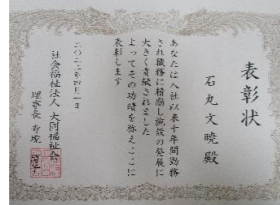 表彰状
石丸文暁殿
あなたは入社以来十年間勤務
され職務に精励し施設の発展に
大きく貢献されました
よってその功績を称えここに
表彰します
二〇二二年四月一日
社会福祉法人 大河福祉会
理事長